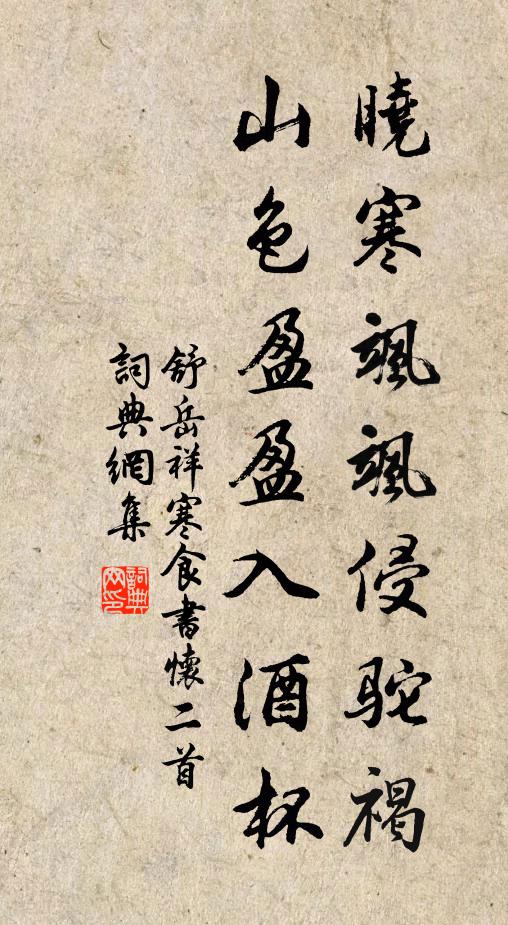 曉寒颯颯侵駝褐
山色盈盈入酒杯
舒岳祥寒食書懷二首
詞典網集
詞典網印